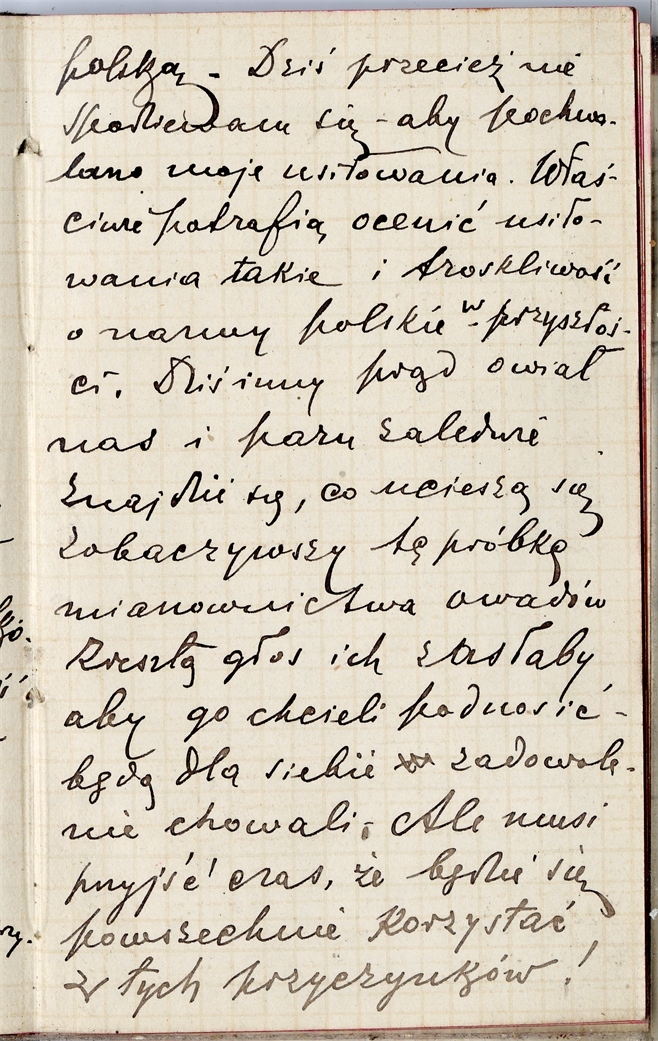 polską. Dziś przecież nie
spodziewam się - aby pochwa-
lano moje usiłowania. Właś-
ciwie potrafią ocenić usiło-
wania takie i troskliwość
o nazwy polskie w przyszłoś-
ci. Dziś inny prąd owiał
nas i paru zaledwie
znajdzie się, co ucieszą się
zobaczywszy tę próbkę
mianownictwa owadów
Zresztą głos ich za słaby
aby go chcieli podnosić -
będą dla siebie zadowole-
nie chowali; Ale musi
przyjść czas, że będzie się
powszechnie korzystać
z tych przyczynków!